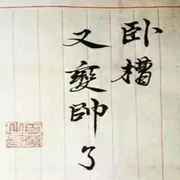 卧槽
又变帅了